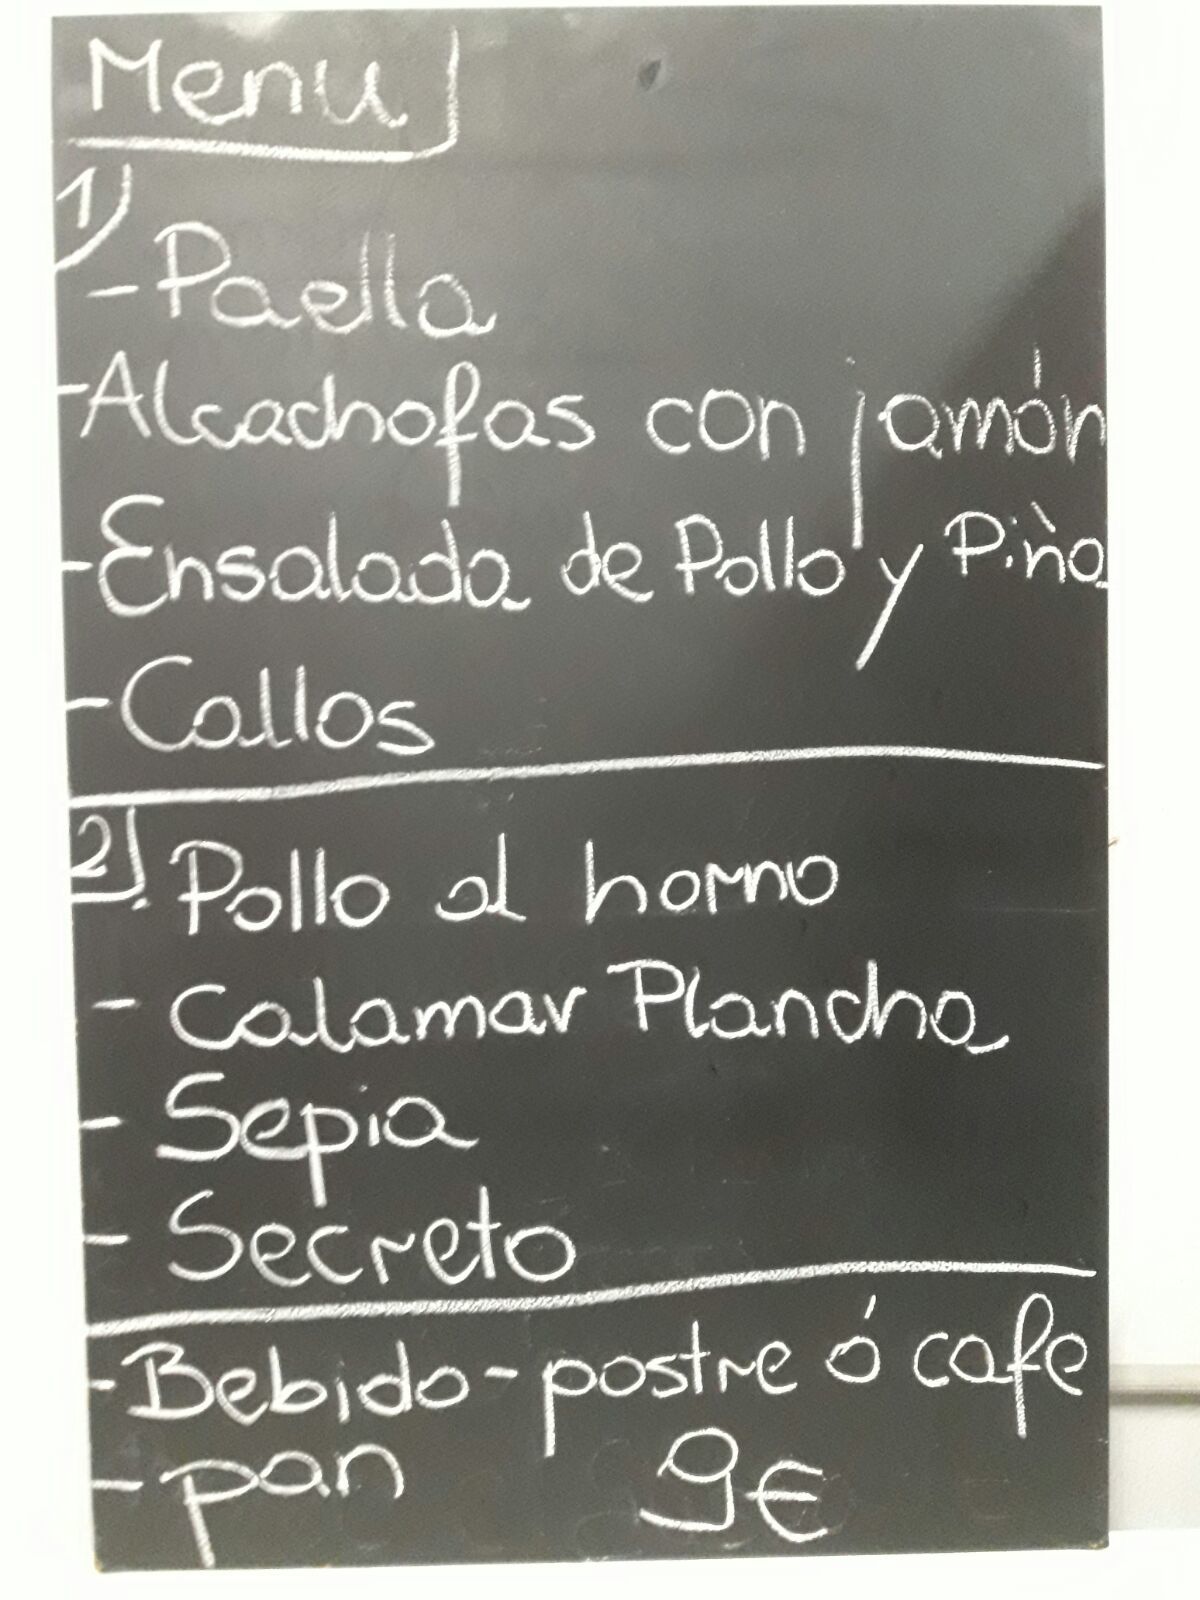 Menu
1)
- Paella
- Alcachofas con jamón
- Ensalada de Pollo y Piña
- Callos
2) Pollo al horno
- Calamar Plancha
- Sepia
- Secreto
- Bebida - postre ó cafe
- pan 9€